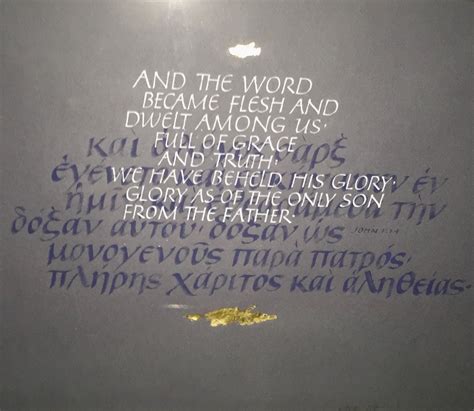 AND THE WORD
BECAME FLESH AND
DWELT AMONG US·
FULL OF GRACE
AND TRUTH·
WE HAVE BEHELD HIS GLORY·
GLORY AS OF THE ONLY SON
FROM THE FATHER·
JOHN 1:14
καὶ ὁ σὰρξ
ἐγένετο ἐν
ἡμῖν τὴν
δόξαν αὐτοῦ· δόξαν ὡς
μονογενοῦς παρὰ πατρός·
πλήρης χάριτος καὶ ἀληθείας·